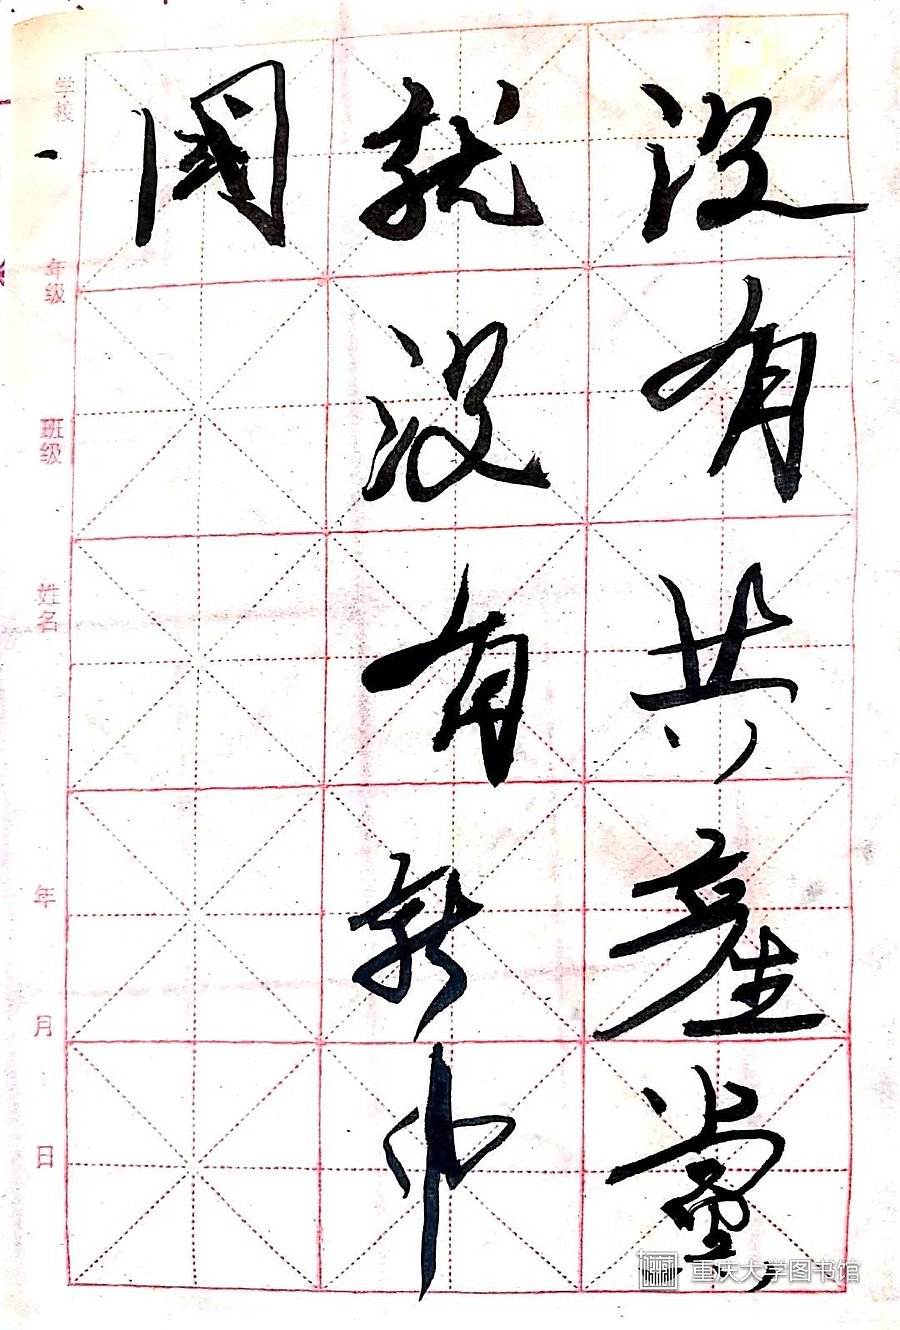 没有共產黨
就没有新中
國
学校
年级
班级
姓名
年
月
日
重庆大学图书馆